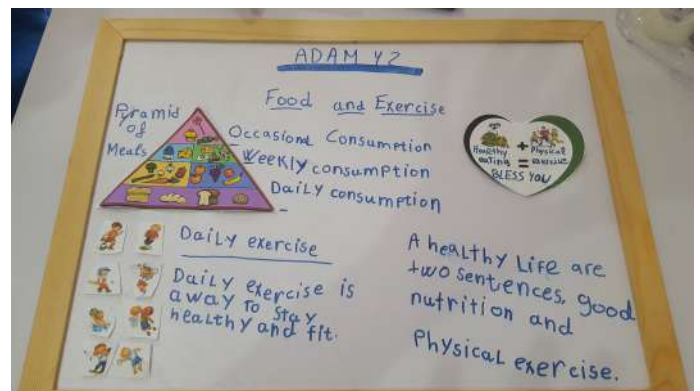 ADAM Y2
Food and Exercise
Pyramid
of
Meals
Occasional Consumption
Weekly consumption
Daily consumption
Healthy + Physical
eating = exercise
BLESS YOU
Daily exercise
Daily exercise is
away to stay
healthy and fit.
A healthy Life are
two sentences, good
nutrition and
Physical exercise.